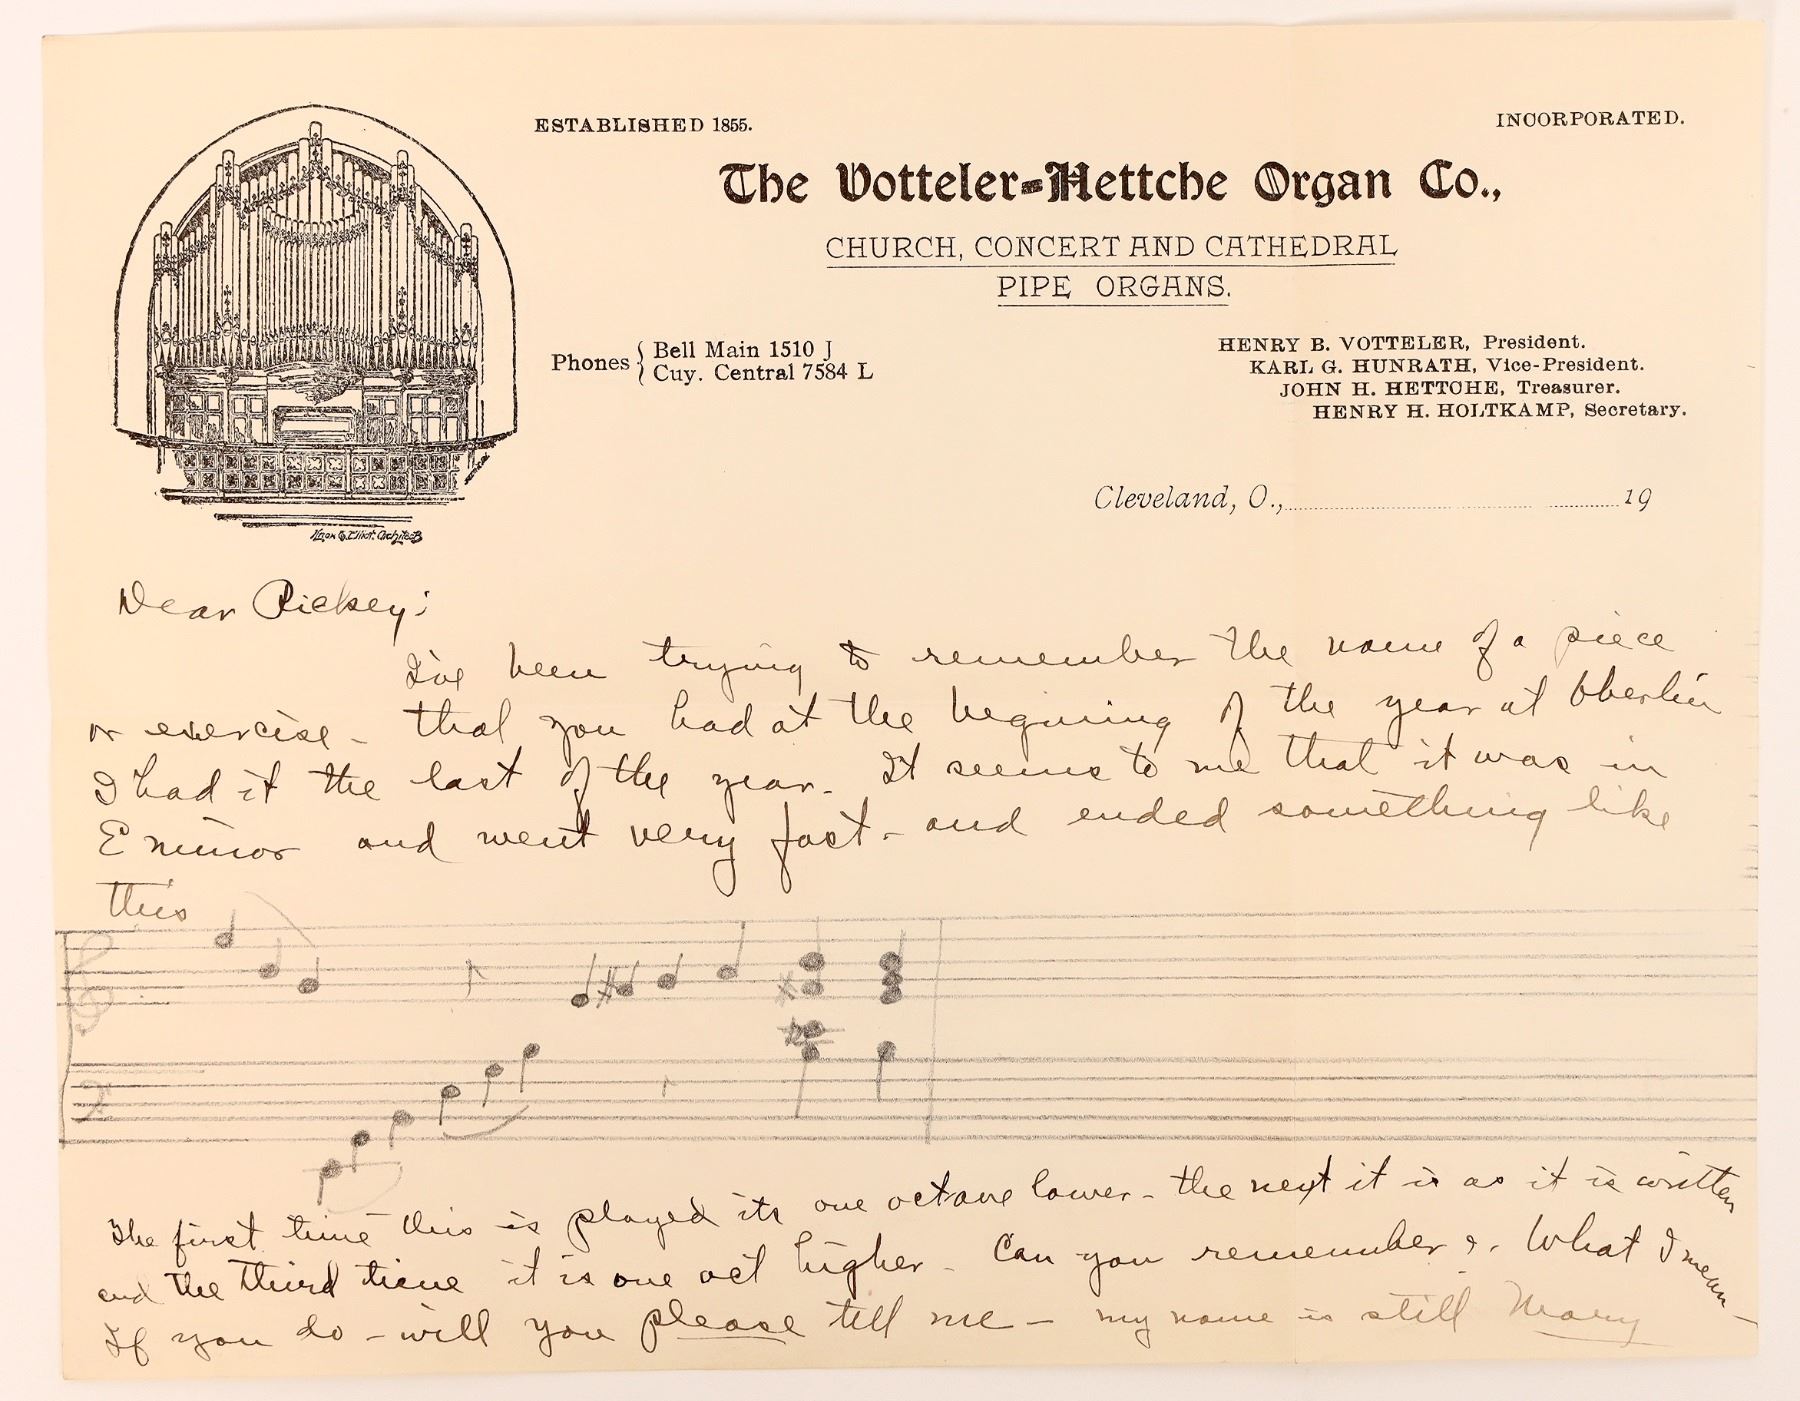 ESTABLISHED 1855.
INCORPORATED.
The Votteler-Hettche Organ Co.,
CHURCH, CONCERT AND CATHEDRAL
PIPE ORGANS.
Phones { Bell Main 1510 J
Cuy. Central 7584 L
HENRY B. VOTTELER, President.
KARL G. HUNRATH, Vice-President.
JOHN H. HETTCHE, Treasurer.
HENRY H. HOLTKAMP, Secretary.
Cleveland, O., 19
Elliot. Architect
Dear Rickey;
I've been trying to remember the name of a piece
or exercise - that you had at the begining of the year at Oberlin
I had it the last of the year. It seems to me that it was in
E minor and went very fast - and ended something like
this
The first time this is played its one octave lower - the next it is as it is written
and the third time it is one oct higher - Can you remember ?. What I mean -
If you do - will you please tell me - my name is still Mary